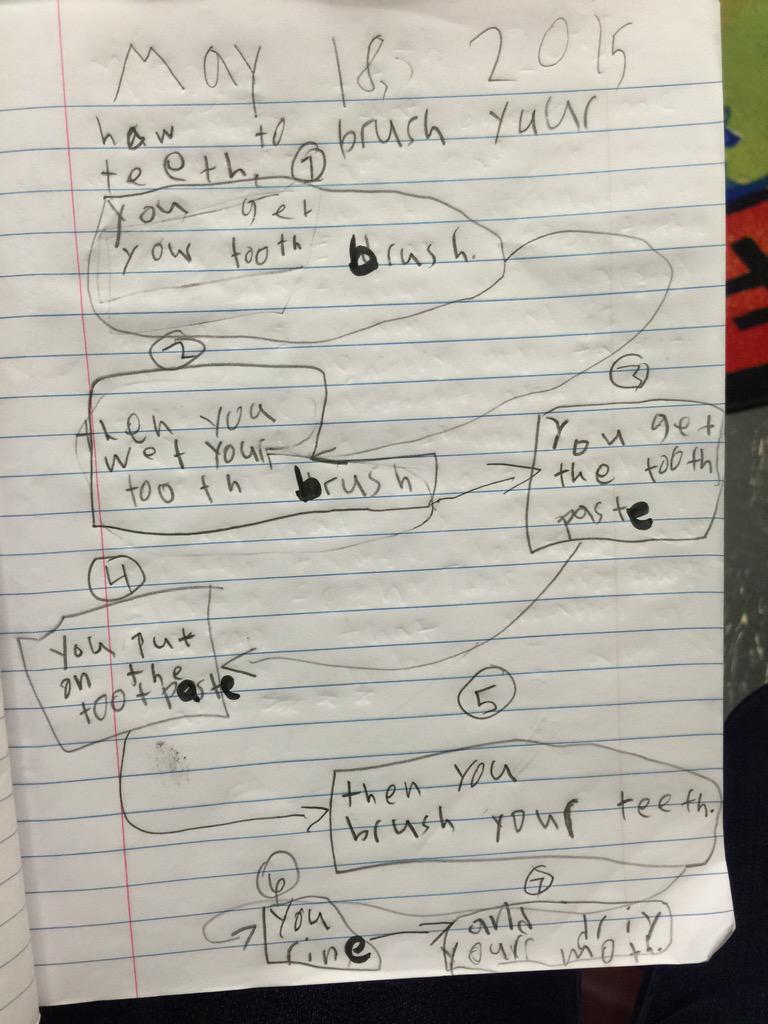 May 18, 2015
haw to brush yuur
teeth.
1
you get
your tooth brush.
2
then you
wet your
tooth brush
3
You get
the tooth
paste
4
you put
on the
tootpaste
5
then you
brush your teeth.
6
you
rine
7
and driy
yourr moth.